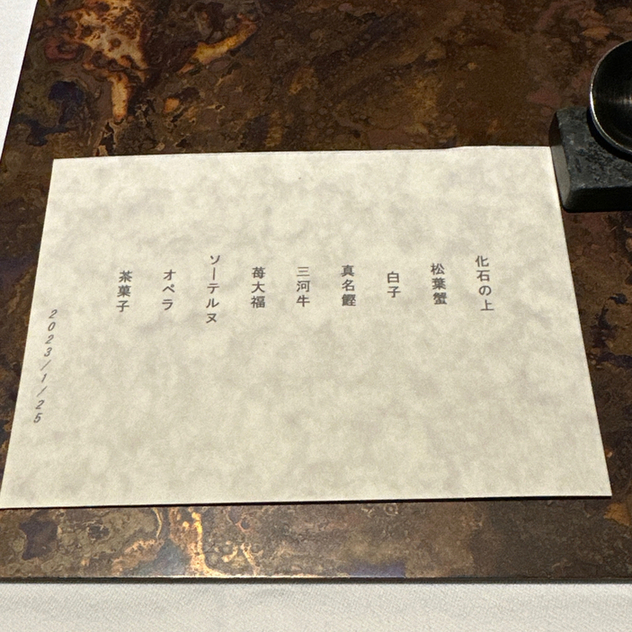 化石の上
松葉蟹
白子
真名鰹
三河牛
苺大福
ソーテルヌ
オペラ
茶菓子
2023/1/25